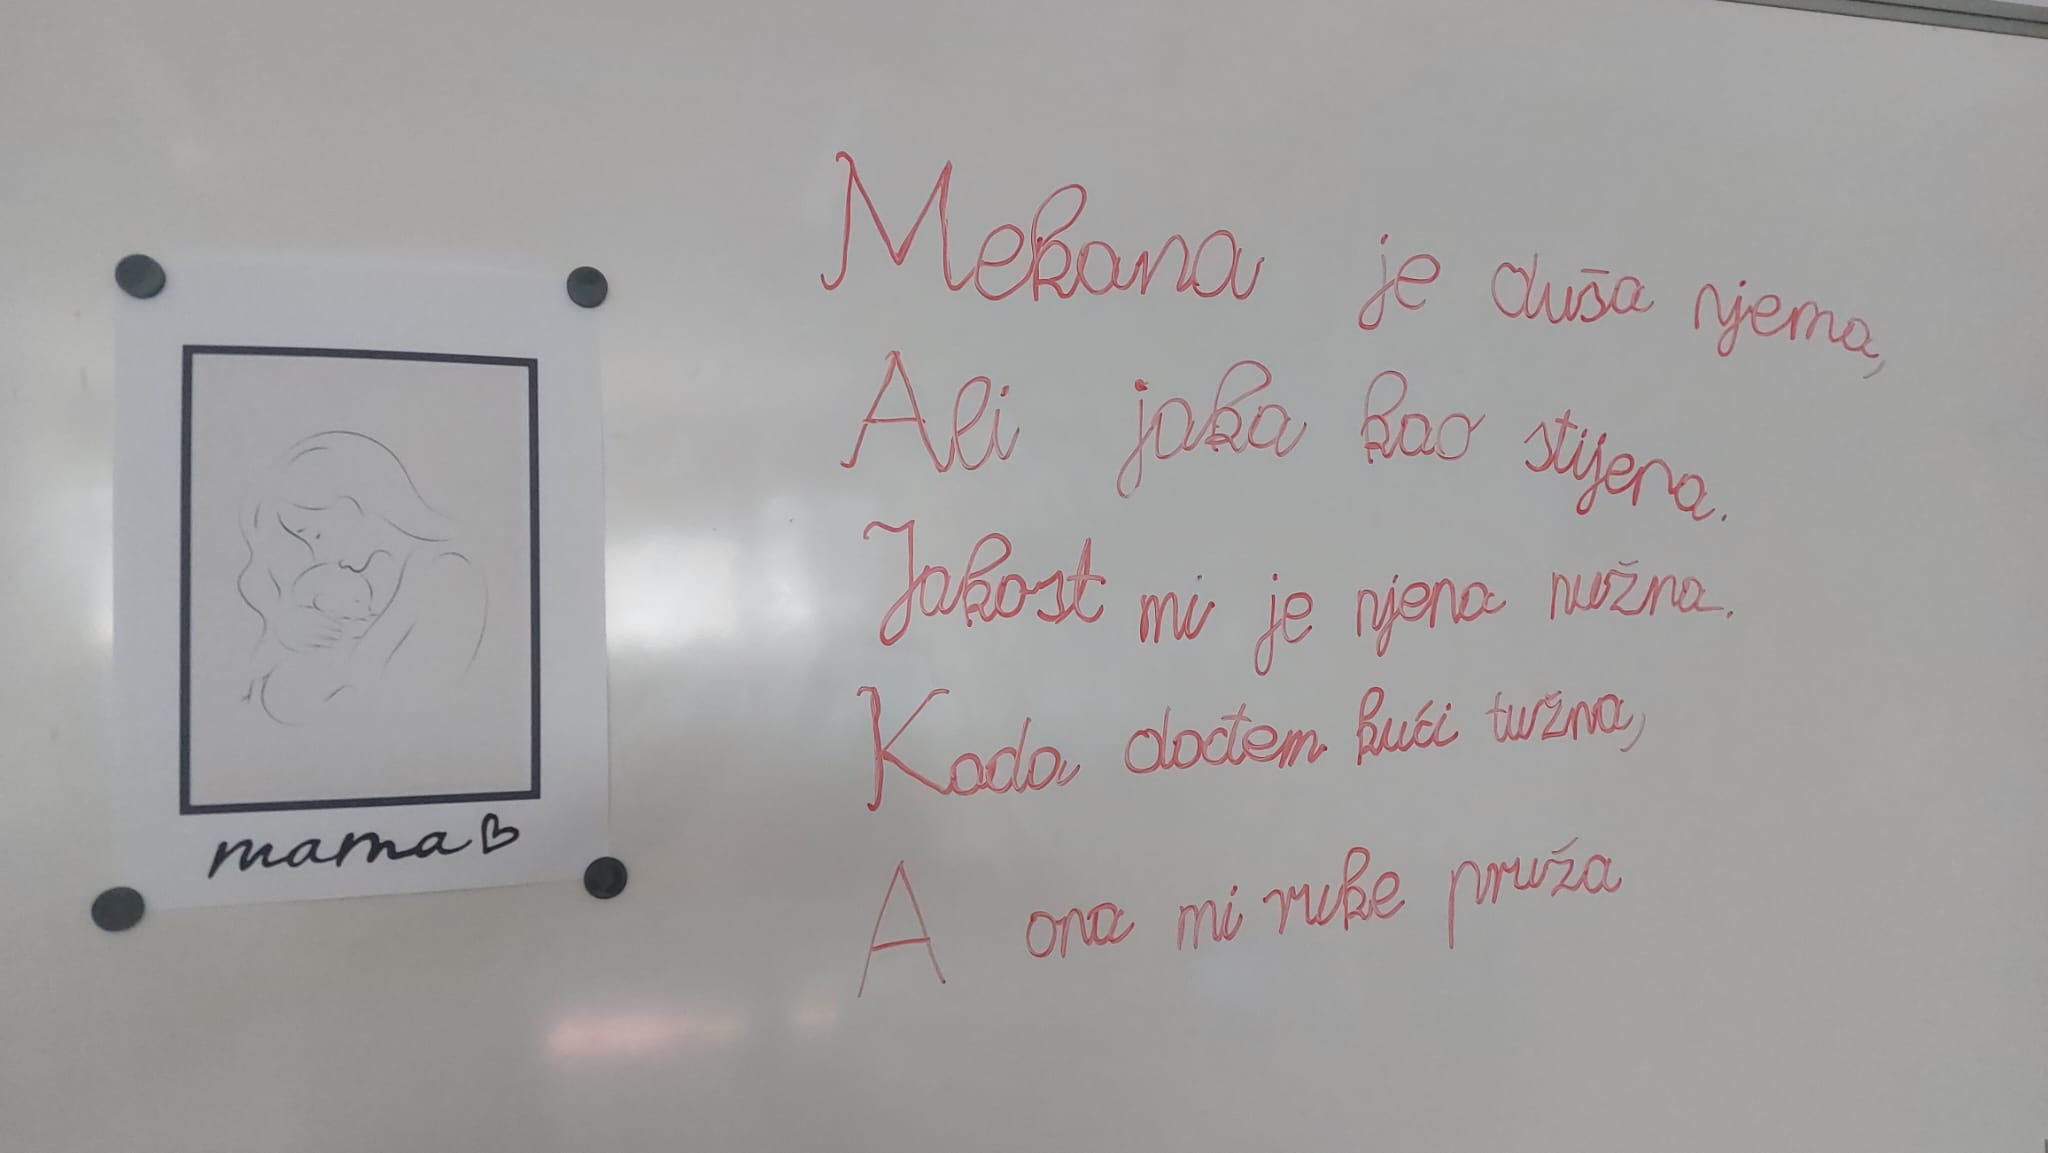 mama
Mekana je duša njema,
Ali jaka kao stijena.
Jakost mi je njena nužna.
Kada dođem kući tužna,
A ona mi ruke pruža